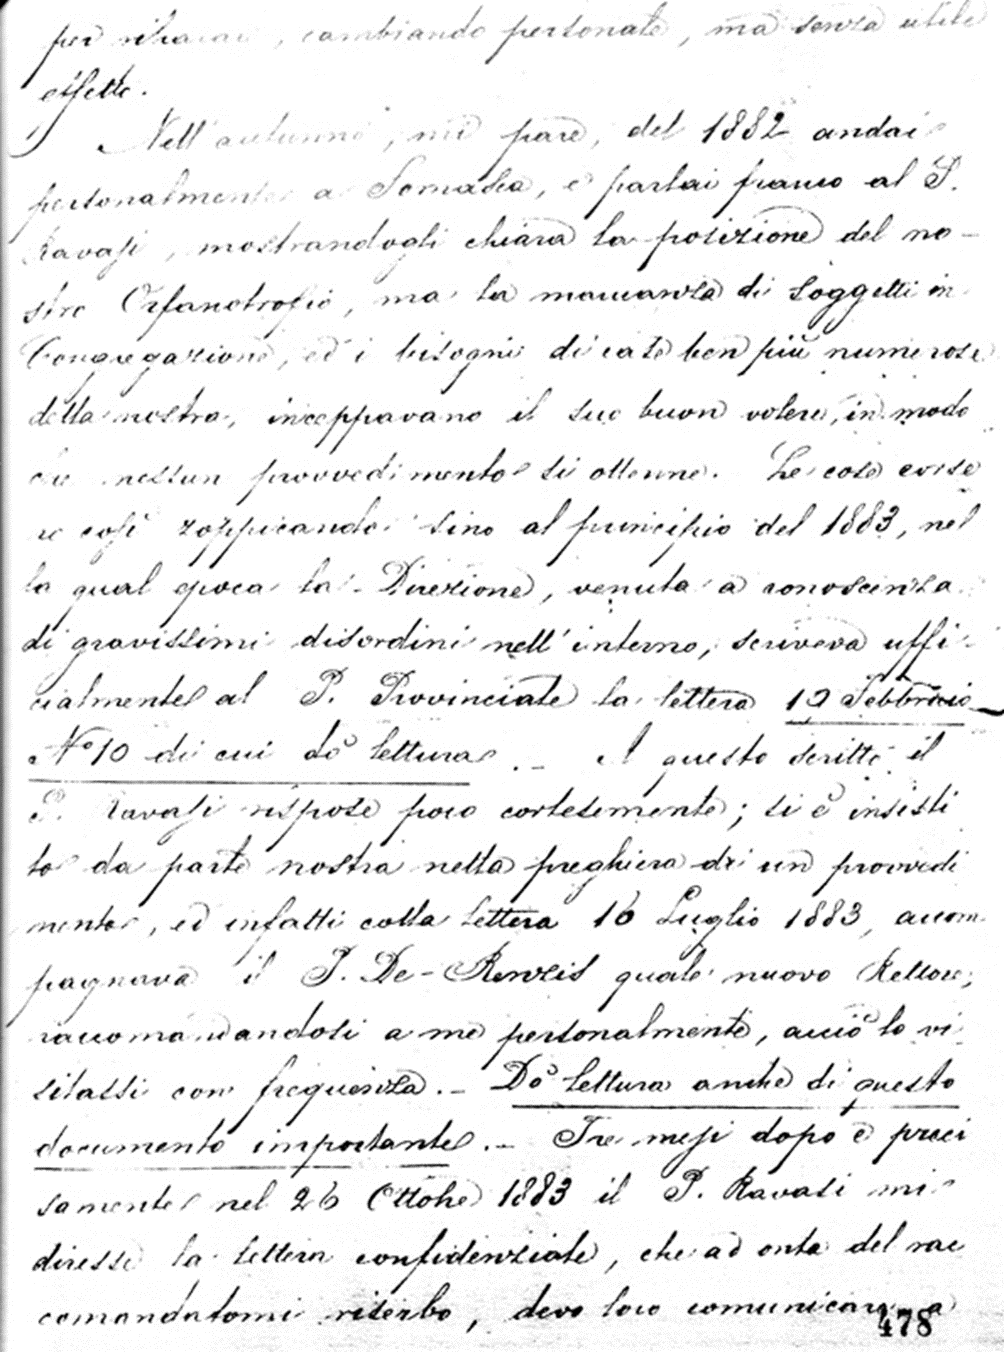 per ritirarli, cambiando personale, ma senza utile
effetto.
Nell'autunno, mi pare, del 1882 andai
personalmente a Somasca, e parlai franco al P.
Ravasi, mostrandogli chiara la posizione del no-
stro Orfanotrofio, ma la mancanza di soggetti in
Congregazione, ed i bisogni di case ben più numerose
della nostra, inceppavano il suo buon volere, in modo
che nessun provvedimento si ottenne. Le cose corse
ro così zoppicando sino al principio del 1883, nel
la qual epoca la Direzione, venuta a conoscenza
di gravissimi disordini nell'interno, scriveva uffi-
cialmente al P. Provinciale la lettera 12 Febbraio
N° 10 di cui dò lettura. - A questo scritto il
P. Ravasi rispose poco cortesemente; si è insisti
to da parte nostra nella preghiera di un provvedi
mento, ed infatti colla lettera 16 Luglio 1883, accom
pagnava il P. De-Renzis quale nuovo Rettore,
raccomandandosi a me personalmente, acciò lo vi
sitassi con frequenza. - Dò lettura anche di questo
documento importante. - Tre mesi dopo e preci
samente nel 26 Ottobre 1883 il P. Ravasi mi
diresse la lettera confidenziale, che ad onta del rac
comandatomi riserbo, devo loro comunicare a
478